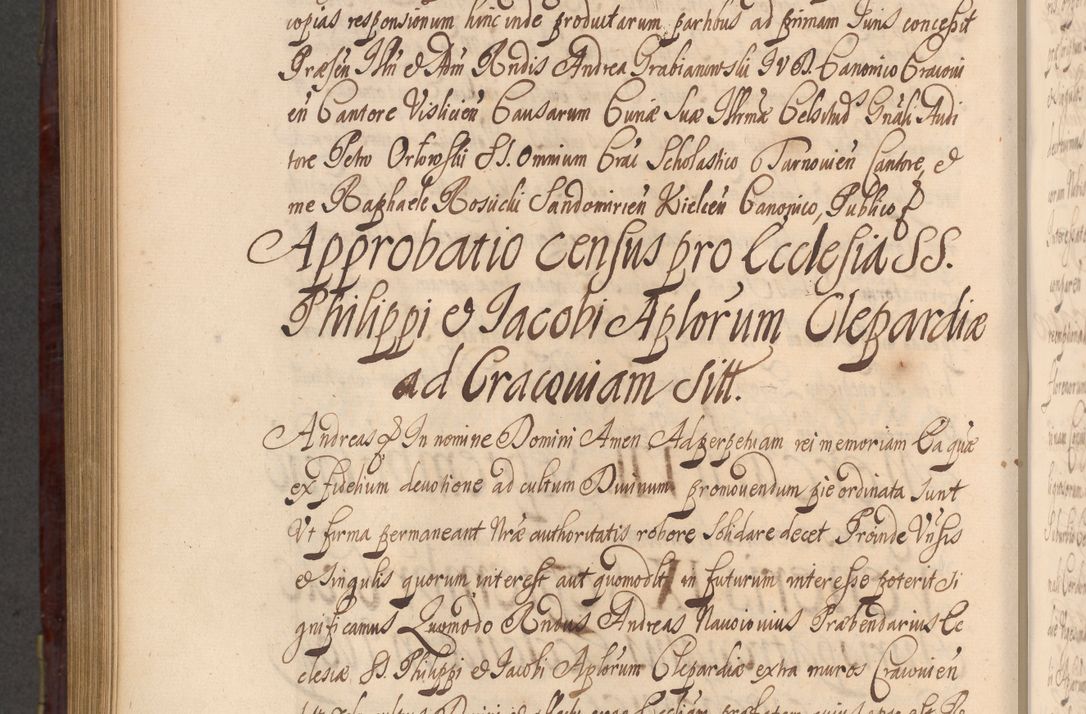 copias responsionum hinc inde productarum partibus ad primam Juris concessit
Præsen Illri et Adm Rndis Andrea Grabianowski J V D. Canonico Cracovi
en Cantore Vislicien Causarum Curiæ Suæ Illrmæ Celsitud Gnali Audi
tore Petro Orłowski SS. Omnium Crac Scholastico Tarnovien Cantore, et
me Raphaele Kosucki Sandomirien Kielcen Canonico, Publico
Approbatio census pro Ecclesia SS.
Philippi et Jacobi Aplorum Clepardiæ
ad Cracoviam sitt.
Andreas In nomine Domini Amen Ad perpetuam rei memoriam Ea quæ
ex fidelium devotione ad cultum Divinum promovendum pie ordinata sunt
Ut firma permaneant Nræ authoritatis robore solidare decet Proinde Unsis
et singulis quorum interest aut quomodlt in futurum interesse poterit si
gnificamus Quomodo Rndus Andreas Præbendarius Ec
clesiæ SS. Philippi et Jacobi Aplorum Clepardiæ extra muros Cracovien